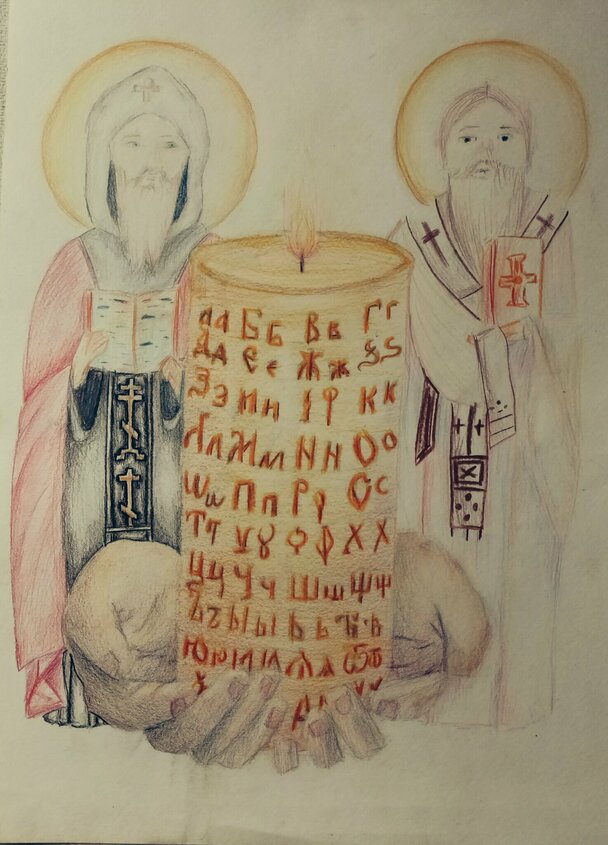 Аа Бб Вв Гг
Дд Єє Жж Ѕѕ
Зз Ии Кк
Лл Мм Нн Оо
Ѡѡ Пп Рр Сс
Тт Ꙋꙋ Фф Хх
Цц Чч Шш Ѱѱ
Ъъ Ыы Ьь Ѣѣ
Юю Ꙗꙗ Ѧѧ